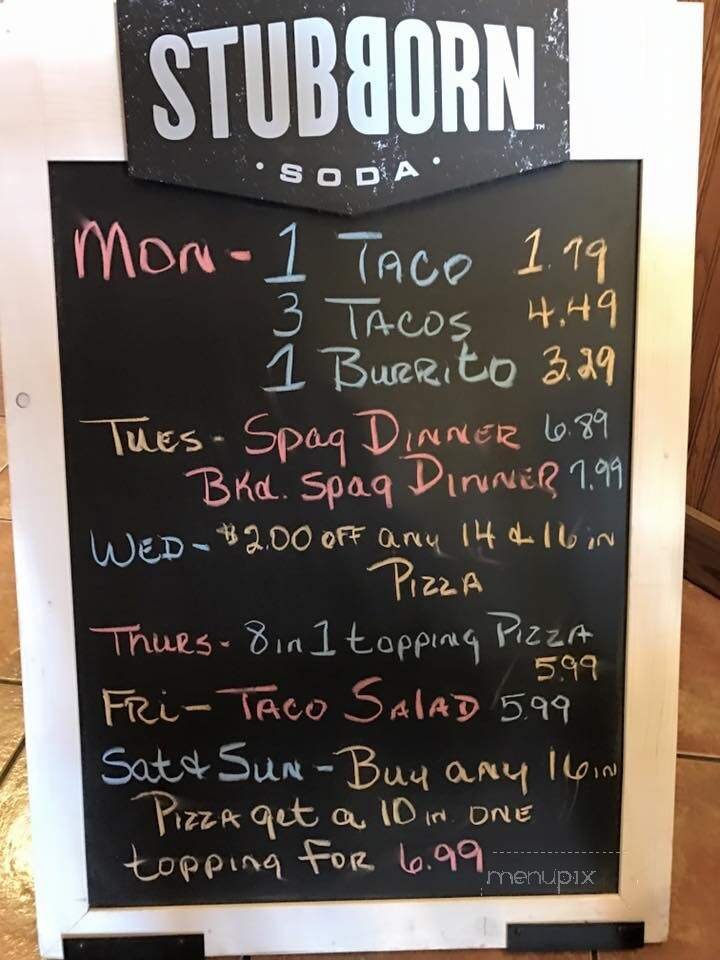 STUBBORN
SODA
MON - 1 TACO 1.79
3 TACOS 4.49
1 BURRITO 3.29
TUES - Spag DINNER 6.89
BKd. Spag DINNER 7.99
WED - $2.00 OFF any 14 & 16 in
PIZZA
THURS - 8 in 1 topping PIZZA
5.99
FRI - TACO SALAD 5.99
Sat & SUN - Buy any 16 in
PIZZA get a 10 in ONE
topping FOR 6.99
menupix